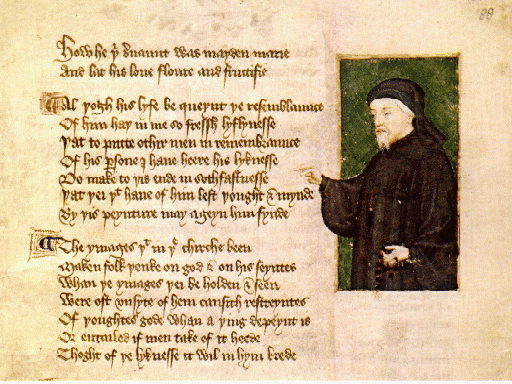 88
How he þi seruaunt was mayden marie
And lat his loue floure and fructifie
Al þogh his lyfe be queynt þe resemblaunce
Of him haþ in me so fressh lyflynesse
Þat to putte othir men in remembraunce
Of his ꝑsone I haue heere his lyknesse
Do make to þis ende in sothfastnesse
Þat þei þᵗ haue of him lest þought & mynde
By þis peynture may ageyn him fynde
The ymages þᵗ in þᵉ chirche been
Maken folk þenke on god & on his seyntes
Whan þe ymages þei be holden & seen
Were oft vnsyte of hem causith restreyntes
Of þoughtes gode whan a þing depeynt is
Or entailed if men take of it heede
Thoght of þe lyknesse it wil in hym brede